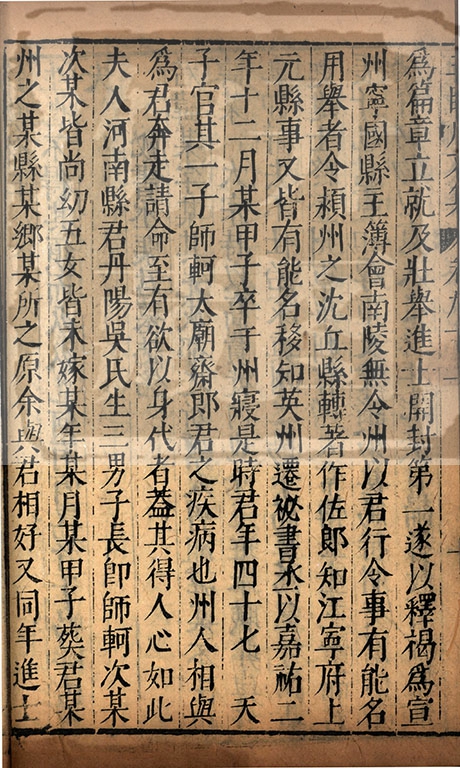 爲篇章立就及壯舉進士開封第一遂以釋褐爲宣
州寧國縣主簿會南陵無令州以君行令事有能名
用舉者令潁州之沈丘縣轉著作佐郎知江寧府上
元縣事又皆有能名移知英州遷祕書丞以嘉祐二
年十二月某甲子卒于州寢是時君年四十七 天
子官其一子師軻太廟齋郎君之疾病也州人相與
爲君奔走請命至有欲以身代者葢其得人心如此
夫人河南縣君丹陽吳氏生三男子長卽師軻次某
次某皆尚幼五女皆未嫁某年某月某甲子葬君某
州之某縣某鄉某所之原余與君相好又同年進士